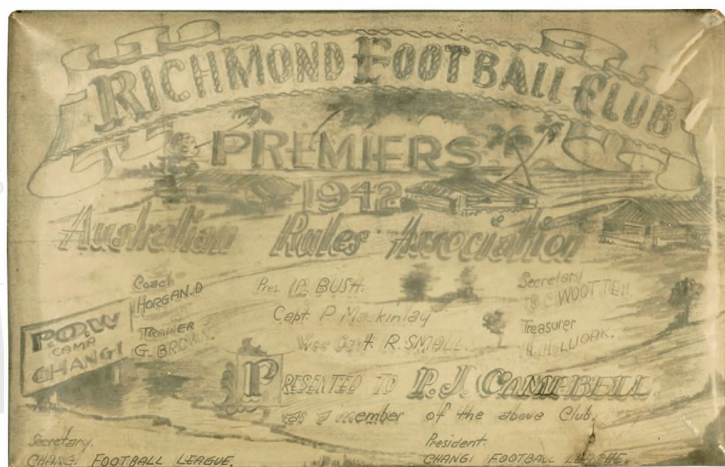 RICHMOND FOOTBALL CLUB
PREMIERS
1942
Australian Rules Association
Coach
HORGAN.D
TRAINER
G. BROWN.
Pres. BUSH.
Capt P Mackinlay
R. SMALL
Secretary
WOOTTEN.
Treasurer
P.O.W
CAMP
CHANGI
PRESENTED TO P. J. CAMPBELL.
as a member of the above Club.
Secretary.
CHANGI FOOTBALL LEAGUE.
President.
CHANGI FOOTBALL LEAGUE.